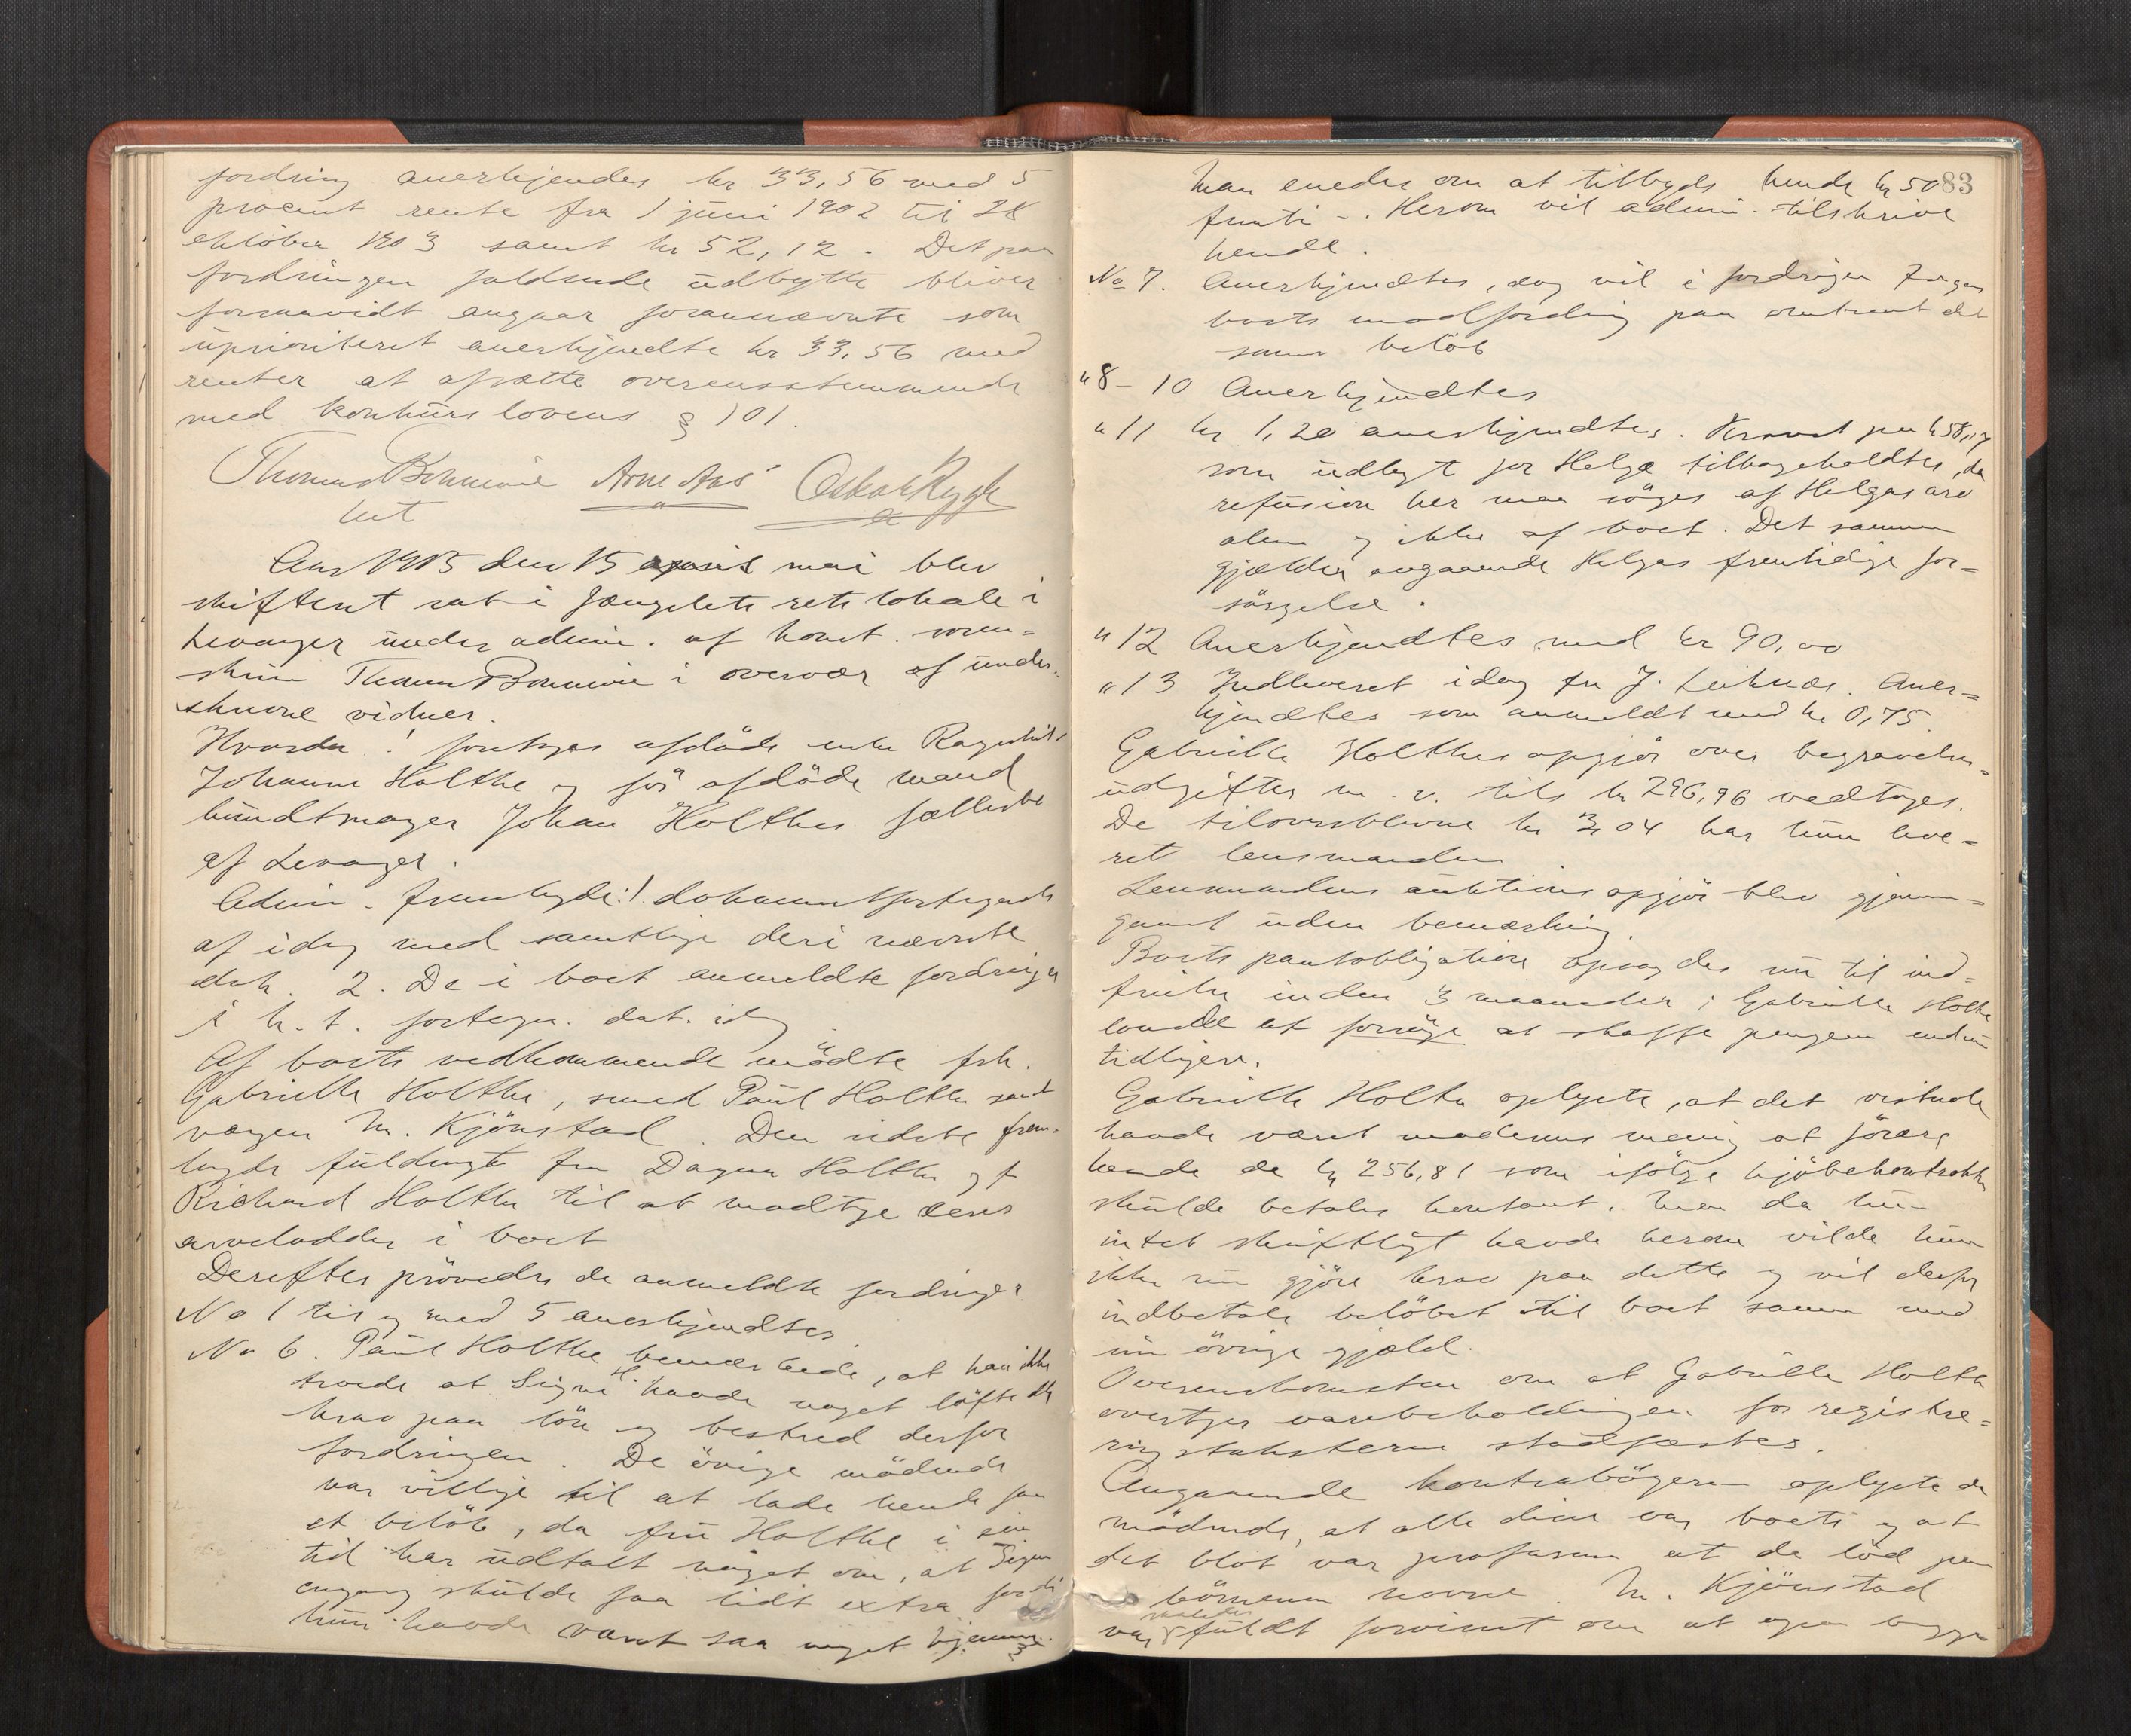 fordring anerkjendes kr 33,56 med 5
procent rente fra 1 juni 1902 til 28
oktober 1903 samt kr 52,12. Det paa
fordringen faldende udbytte bliver
forsaavidt angaar forannævnte som
uprioriteret anerkjendte kr 33,56 med
renter at afsætte overensstemmende
med konkurslovens § 101.
Thomas Bonnevie Arne Aas Oskar Rygh
kst
Aar 1905 den 15 april mai blev
skifteret sat i fængslets retslokale i
Levanger under admin. af konst. soren=
skriver Thomas Bonnevie i overvær af under=
skrevne vidner.
Hvorda! foretoges afdøde enke Ragnhild
Johanne Holthe og før afdøde mand
bundtmager Johan Holthes fællesbo
af Levanger.
Admin. fremlagde: 1. dokumentfortegnelse
af idag med samtlige deri nævnte
dok. 2. De i boet anmeldte fordringer
i h. t. fortegn. dat. idag
Af boets vedkommende mødte frk.
Gabrielle Holthe, smed Paul Holthe samt
vergen M. Kjönstad. Den sidste frem=
lagde fuldmagt fra Dagmar Holthe og fra
Richard Holthe til at modtage deres
arvelodder i boet
Derefter prövedes de anmeldte fordringer.
No 1 til og med 5 anerkjendtes
No 6. Paul Holthe bemærkede, at han ikke
troede at Signe H. havde noget löfte eller
krav paa lön og bestred derfor
fordringen. De övrige mödende
var villige til at lade hende faa
et belöb, da fru Holthe i sin
tid har udtalt noget om, at Signe
engang skulde faa lidt extra fordi
hun havde været saa meget hjemme.
Man enedes om at tilbyde hende kr 50 83
femti -. Herom vil admin. tilskrive
hende.
No 7. Anerkjendtes, dog vil i fordringen
boets modfordring paa omtrent det
samme belöb
" 8 - 10 Anerkjendtes
" 11 kr 1,20 anerkjendtes. Kravet paa kr 58,17
som udlagt for Helga tilbageholdtes, da
refusion her maa söges af Helgas arv
alene og ikke af boet. Det samme
gjælder angaaende Helgas fremtidige for=
sörgelse.
" 12 Anerkjendtes med kr 90,00
" 13 Indleveret idag fra J. Leiknes. Aner=
kjendtes som anmeldt med kr 0,75.
Gabrielle Holthes opgjör over begravelses=
udgifter m. v. tils kr 296,96 vedtoges.
De tiloversblevne kr 3,04 har hun leve=
ret lensmanden
Lensmandens auktionsopgjör blev gjennem=
gaaet uden bemærkning.
Boets pantobligation opsagdes nu til ind=
frielse inden 3 maaneder; Gabrielle Holthe
lovede at forsöge at skaffe pengene endnu
tidligere.
Gabrielle Holthe oplyste, at det vistnok
havde været moderens mening at forære
hende de kr 256,81 som ifölge kjöbekontrakten
skulde betales kontant. Men da hun
intet skriftligt havde herom vilde hun
ikke nu gjöre krav paa dette og vil derfor
indbetale belöbet til boet sammen med
sin övrige gjæld.
Overenskomsten om at Gabrielle Holthe
overtager varebeholdningen for registre=
ringstaksterne stadfæstes.
Angaaende kontrabögerne oplyste de
mödende, at alle disse var boets og at
det blot var proforma at de löd paa
börnenes navne. M. Kjönstad
var fuldt forvisset om at ogsaa begge